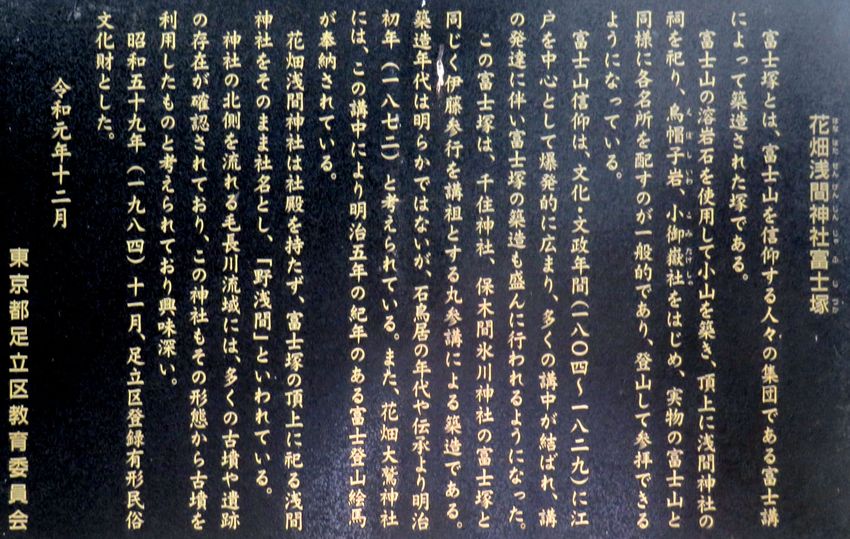 花畑浅間神社富士塚
はなはたせんげんじんじゃふじづか
富士塚とは、富士山を信仰する人々の集団である富士講
によって築造された塚である。
富士山の溶岩石を使用して小山を築き、頂上に浅間神社の
祠を祀り、烏帽子岩、小御嶽社をはじめ、実物の富士山と
えぼしいわ こみたけしゃ
同様に各名所を配すのが一般的であり、登山して参拝できる
ようになっている。
富士山信仰は、文化・文政年間(一八〇四〜一八二九)に江
戸を中心として爆発的に広まり、多くの講中が結ばれ、講
の発達に伴い富士塚の築造も盛んに行われるようになった。
この富士塚は、千住神社、保木間氷川神社の富士塚と
同じく伊藤参行を講祖とする丸参講による築造である。
築造年代は明らかではないが、石鳥居の年代や伝承より明治
初年(一八七二)と考えられている。また、花畑大鷲神社
には、この講中により明治五年の紀年のある富士登山絵馬
が奉納されている。
花畑浅間神社は社殿を持たず、富士塚の頂上に祀る浅間
神社をそのまま社名とし、「野浅間」といわれている。
神社の北側を流れる毛長川流域には、多くの古墳や遺跡
の存在が確認されており、この神社もその形態から古墳を
利用したものと考えられており興味深い。
昭和五十九年(一九八四)十一月、足立区登録有形民俗
文化財とした。
令和元年十二月
東京都足立区教育委員会